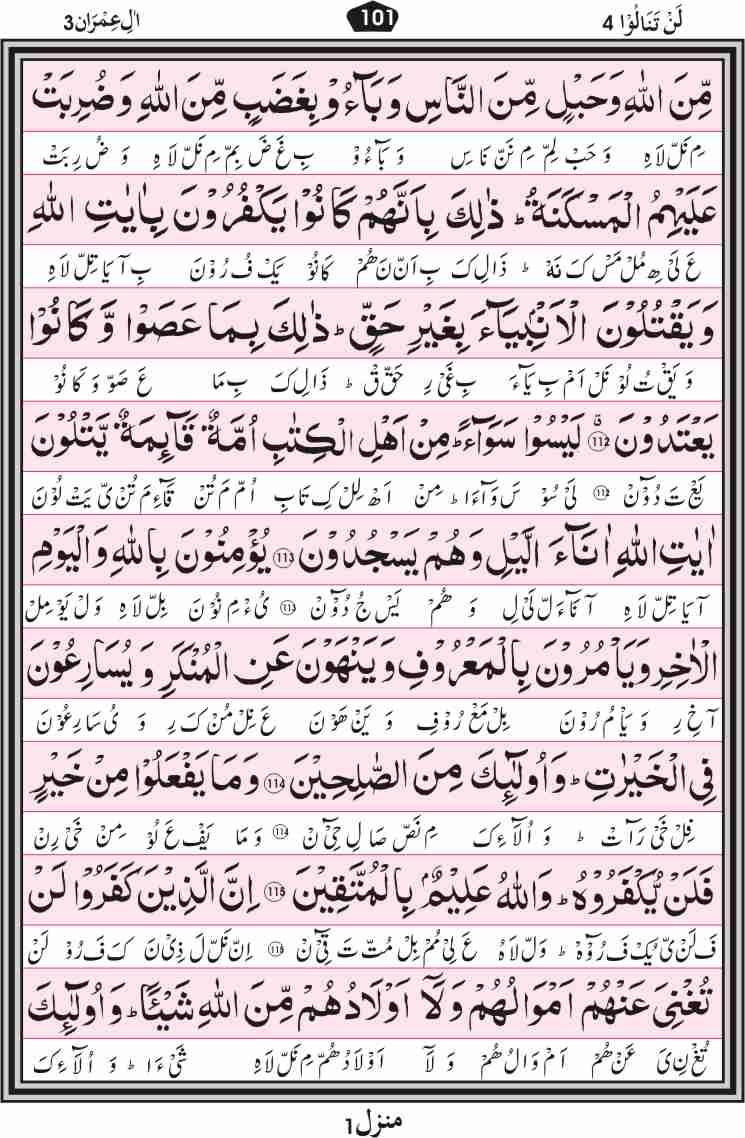 لَنْ تَنَالُوْا 4 101 اٰلِ عِمْرَان3
مِّنَ اللّٰهِ وَحَبْلٍ مِّنَ النَّاسِ وَبَآءُوْ بِغَضَبٍ مِّنَ اللّٰهِ وَضُرِبَتْ
مِ نَلّ لَاهِ وَ حَبْ لِمّ مِ نَنّ نَاسِ وَ بَاءُوْ بِ غَ ضَ بِمّ مِ نَلّ لَاهِ وَ ضُ رِبَتْ
عَلَيْهِمُ الْمَسْكَنَةُ ؕ ذٰلِكَ بِاَنَّهُمْ كَانُوْا يَكْفُرُوْنَ بِاٰيٰتِ اللّٰهِ
عَ لَىْ هِ مُلْ مَسْ كَ نَهْ ؕ ذَالِ كَ بِ اَنّ نَ هُمْ كَانُوْ يَكْ فُ رُوْنَ بِ آ يَا تِلّ لَاهِ
وَيَقْتُلُوْنَ الْاَنْۢبِيَآءَ بِغَيْرِ حَقٍّ ؕ ذٰلِكَ بِمَا عَصَوْا وَّكَانُوْا
وَ يَقْ تُ لُوْ نَلْ اَمْ بِ يَاءَ بِ غَىْ رِ حَقّ قْ ؕ ذَالِ كَ بِ مَا عَ صَوّ وَ كَا نُوْ
يَعْتَدُوْنَ ۙ۝112 لَيْسُوْا سَوَآءً ؕ مِنْ اَهْلِ الْكِتٰبِ اُمَّةٌ قَآئِمَةٌ يَّتْلُوْنَ
يَعْ تَ دُوْنْ 112 لَىْ سُوْ سَ وَآءَا ؕ مِنْ اَهْ لِلْ كِ تَابِ اُمّ مَ تُنْ قَآءِ مَ تُنْ ىّ يَتْ لُوْنَ
اٰيٰتِ اللّٰهِ اٰنَآءَ الَّيْلِ وَهُمْ يَسْجُدُوْنَ ۝113 يُؤْمِنُوْنَ بِاللّٰهِ وَالْيَوْمِ
آ يَا تِلّ لَاهِ آ نَآءَلّ لَىْ لِ وَ هُمْ يَسْ جُ دُوْنْ 113 ىُ ءْ مِ نُوْنَ بِلّ لَاهِ وَلْ يَوْ مِلْ
الْاٰخِرِ وَيَاْمُرُوْنَ بِالْمَعْرُوْفِ وَيَنْهَوْنَ عَنِ الْمُنْكَرِ وَيُسَارِعُوْنَ
آ خِ رِ وَ يَاْ مُ رُوْنَ بِلْ مَعْ رُوْفِ وَ يَنْ هَوْنَ عَ نِلْ مُنْ كَ رِ وَ ىُ سَا رِ عُوْنَ
فِي الْخَيْرٰتِ ؕ وَاُولٰٓئِكَ مِنَ الصّٰلِحِيْنَ ۝114 وَمَا يَفْعَلُوْا مِنْ خَيْرٍ
فِلْ خَىْ رَآتْ ؕ وَ اُلَآءِكَ مِ نَصّ صَا لِ حِىْ نْ 114 وَ مَا يَفْ عَ لُوْ مِنْ خَىْ رِنْ
فَلَنْ يُّكْفَرُوْهُ ؕ وَاللّٰهُ عَلِيْمٌۢ بِالْمُتَّقِيْنَ ۝115 اِنَّ الَّذِيْنَ كَفَرُوْا لَنْ
فَ لَنْ ىّ يُكْ فَ رُوْهْ ؕ وَلّ لَاهُ عَ لِىْ مُمْ بِلْ مُتّ تَ قِىْ نْ 115 اِنّ نَلّ لَ ذِىْ نَ كَ فَ رُوْ لَنْ
تُغْنِيَ عَنْهُمْ اَمْوَالُهُمْ وَلَاۤ اَوْلَادُهُمْ مِّنَ اللّٰهِ شَيْـًٔا ؕ وَاُولٰٓئِكَ
تُغْ نِ ىَ عَنْ هُمْ اَمْ وَالُ هُمْ وَ لَآ اَوْلَادُ هُمّ مِ نَلّ لَاهِ شَىْ ءَا ؕ وَ اُلَآءِكَ
منزل1